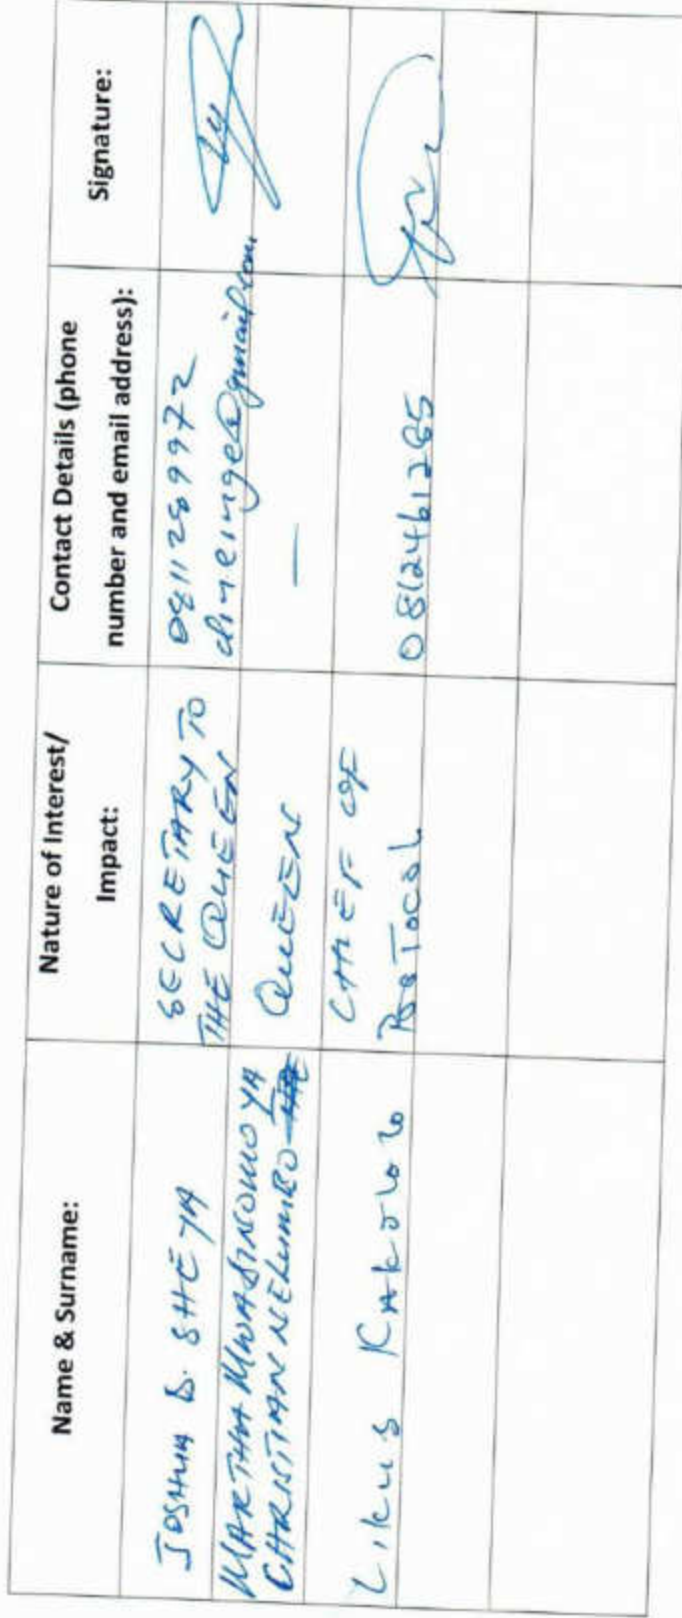 Name & Surname:
Nature of Interest/
Impact:
Contact Details (phone
number and email address):
Signature:
JOSHUA D. SHEYA
SECRETARY TO
THE QUEEN
0811289972
MARTHA MWASINOMO YA
CHRISTIAN NELUMBO
QUEEN
—
Likus Kakololo
CHIEF OF
PROTOCOL
0812461285